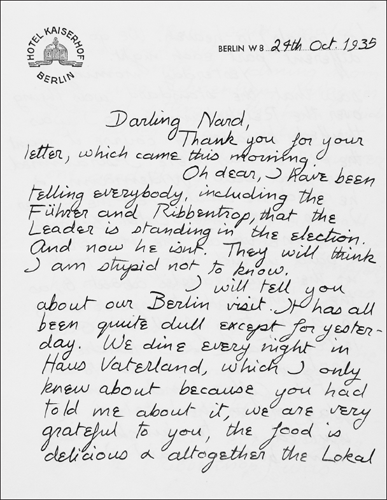 HOTEL KAISERHOF
BERLIN
BERLIN W 8 24th Oct. 1935
Darling Nard,
Thank you for your
letter, which came this morning.
Oh dear, I have been
telling everybody, including the
Führer and Ribbentrop, that the
Leader is standing in the election.
And now he isnt. They will think
I am stupid not to know.
I will tell you
about our Berlin visit. It has all
been quite dull except for yester-
day. We dine every night in
Haus Vaterland, which I only
knew about because you had
told me about it, we are very
grateful to you, the food is
delicious & altogether the Lokal